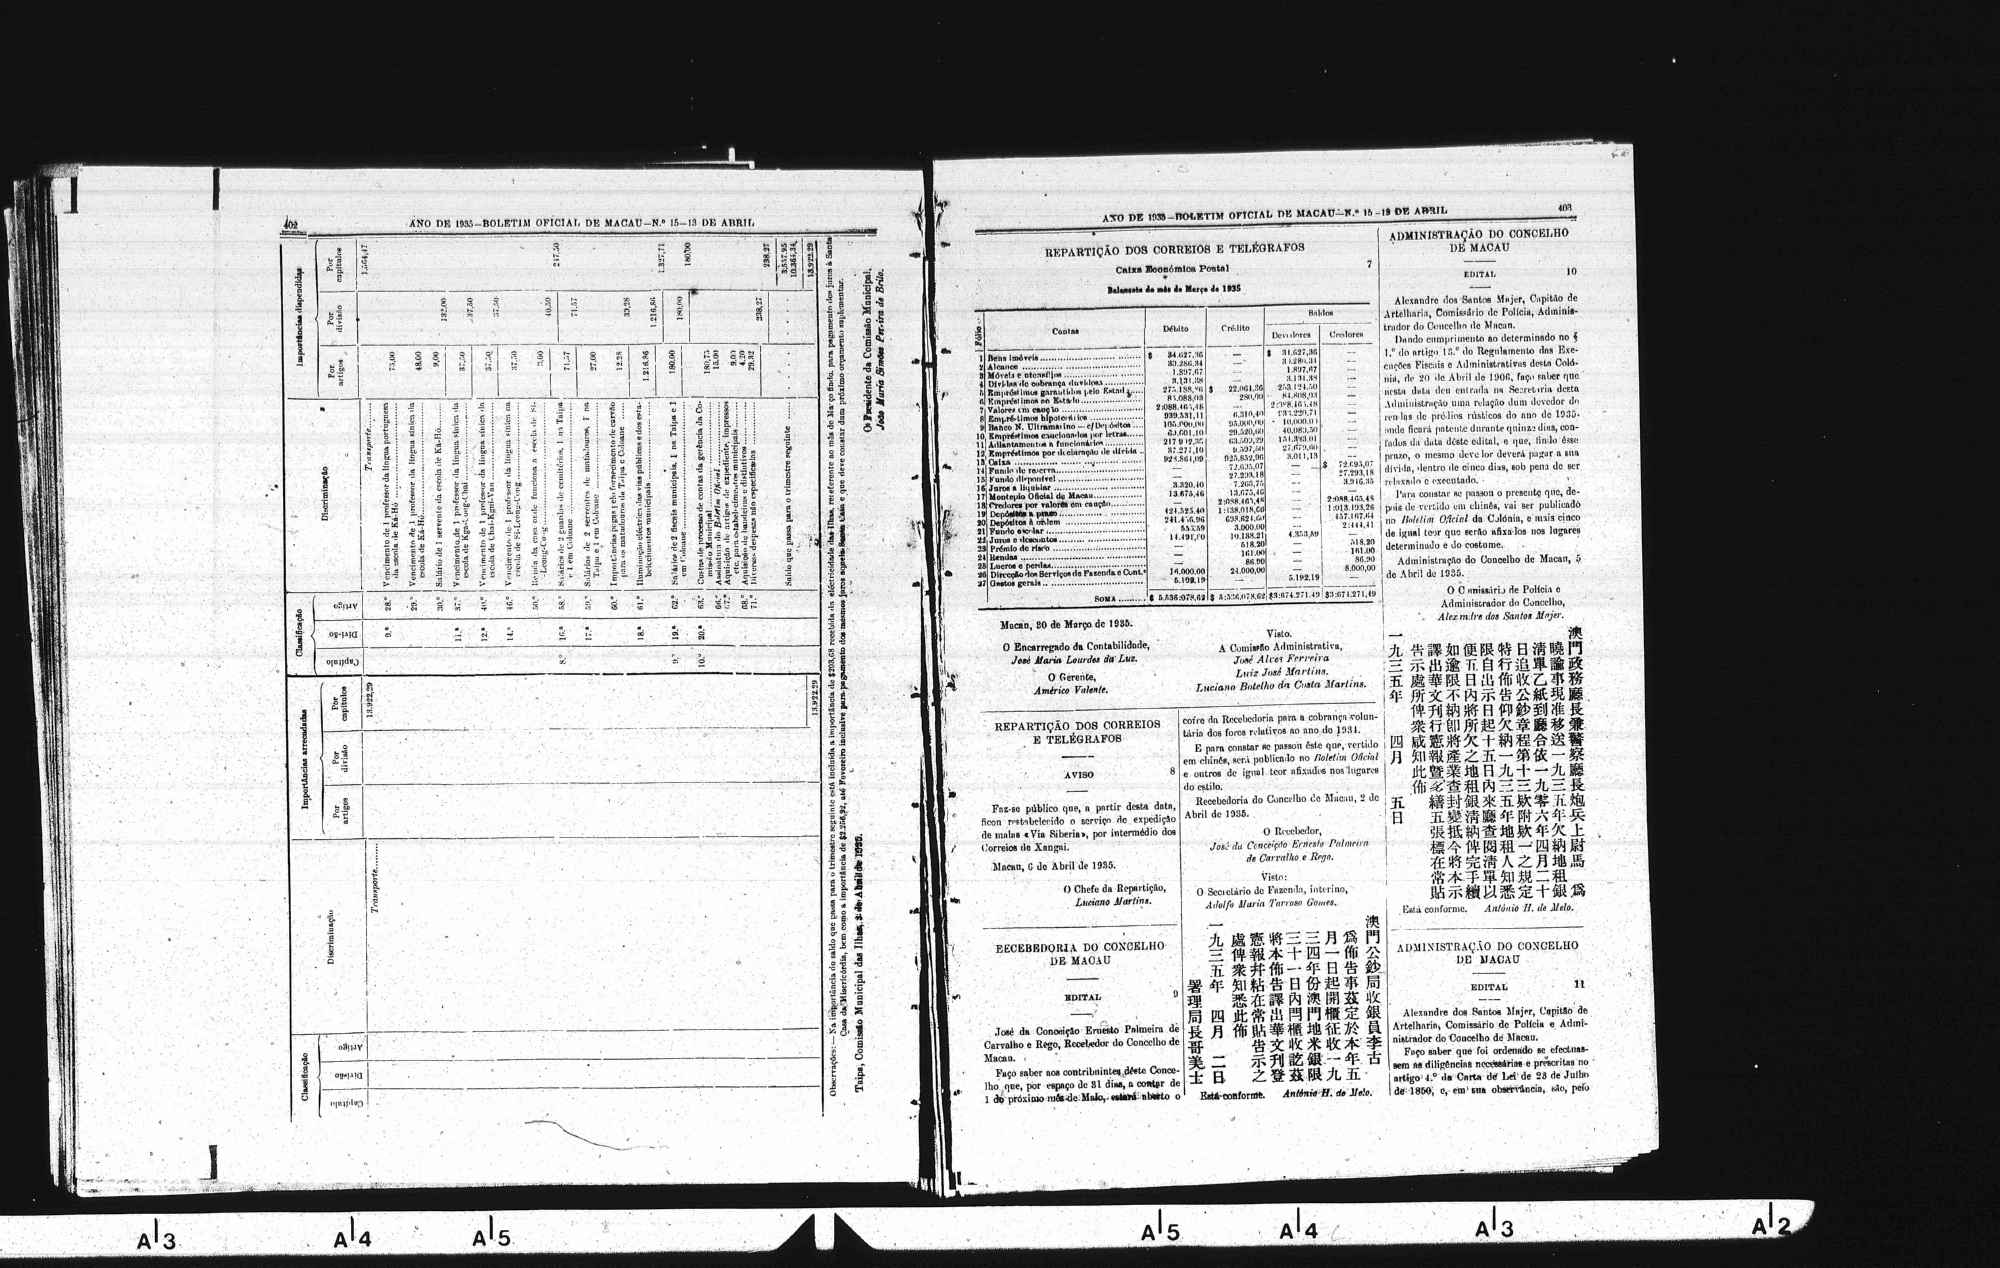 402
ANO DE 1935—BOLETIM OFICIAL DE MACAU—N.º 15—13 DE ABRIL
Classificação
Discriminação
Importâncias arrecadadas
Classificação
Discriminação
Importâncias dispendidas
Capítulo
Divisão
Artigo
Por artigos
Por divisão
Por capítulos
Capítulo
Divisão
Artigo
Por artigos
Por divisão
Por capítulos
Transporte
13.922,29
Transporte
9.ª 28.º Vencimento de 1 professor da língua portuguesa
da escola de Ká-Hó
29.º Vencimento de 1 professor da língua sínica da
escola de Ká-Hó 48,00
30.º Salário de 1 servente da escola de Ká-Hó 9,00 132,00
11.ª 37.º Vencimento de 1 professor da língua sínica da
37,50 37,50
12.ª 40.º Vencimento de 1 professor da língua sínica da
37,50 37,50
14.ª 46.º Vencimento de 1 professor da língua sínica na
37,50
50.º Renda da casa onde funciona a escola de Si-
247,50
8.º 16.ª 58.º Salários de 2 guardas de cemitérios, 1 na Taipa
e 1 em Coloane 71,57 71,57
17.ª 59.º Salários de 2 serventes de matadouros, 1 na
Taipa e 1 em Coloane 27,00
60.º Importâncias pagas pelo fornecimento de carvão
para os matadouros de Taipa e Coloane 12,28 39,28
18.ª 61.º Iluminação eléctrica das vias públicas e dos esta-
belecimentos municipais 1.216,86 1.216,86 1.327,71
9.º 19.ª 62.º Salários de 2 fiscais municipais, 1 na Taipa e 1
em Coloane 180,00 180,00 180,00
10.º 20.ª 63.º Custas de processo de contas da gerência da Co-
missão Municipal 180,75
66.º Assinatura do Boletim Oficial 15,00
67.º Aquisição de artigos de expediente, impressos
etc. para estabelecimentos municipais 9,00
68.º Aquisição de bandeiras e distintivos 4,20
71.º Diversas despesas não especificadas 29,32 238,27 238,27
3.557,95
Saldo que passa para o trimestre seguinte 10.364,34
13.922,29
13.922,29
Observações:—Na importância do saldo que passa para o trimestre seguinte está incluída a importância de $203,68 recebida da eléctricidade das Ilhas, referente ao mês de Março findo, para pagamento dos juros à Santa
Casa da Misericórdia, bem como a importância de até Fevereiro inclusive para pagamento dos mesmos juros àquela Santa Casa e que deve constar dum próximo orçamento suplementar.
Taipa, Comissão Municipal das Ilhas, de Abril de 1935.
O Presidente da Comissão Municipal,
João Maria Simões Pereira de Brito.
ANO DE 1935—BOLETIM OFICIAL DE MACAU—N.º 15—13 DE ABRIL
403
REPARTIÇÃO DOS CORREIOS E TELÉGRAFOS
Caixa Económica Postal
7
Balancete do mês de Março de 1935
Fólio
Contas
Débito
Crédito
Saldos
Devedores
Credores
1 Bens imóveis $ 34.627,36 — $ 34.627,36 —
2 Alcance —
3 Móveis e utensílios 1.897,67 — 1.897,67 —
4 Dívidas de cobrança duvidosa 3.131,38 — 3.131,38 —
5 Empréstimos garantidos pelo Estado $ 22.064,36 253.124,50 —
6 Empréstimos ao Estado 280,00 84.808,03 —
7 Valores em caução 2:088.465,48 — 2:088.465,48 —
8 Empréstimos hipotecários 939.531,11 6.310,40
9 Banco N. Ultramarino — c/Depósitos 105.000,00 95.000,00 10.000,00
10 Empréstimos caucionados por letras 29.520,60 40.080,50
11 Adiantamentos a funcionários
12 Empréstimos por declaração de dívida 37.277,10 9.597,50 27.679,60
13 Caixa 925.852,96 3.011,13
14 Fundo de reserva — 72.695,07 — $ 72.695,07
15 Fundo disponível — 27.293,18 — 27.293,18
16 Juros a liquidar 3.320,40 7.266,75 — 3.946,35
17 Montepio Oficial de Macau 13.675,46 13.675,46 — —
18 Credores por valores em caução — 2:088.465,48 — 2:088.465,48
19 Depósitos a prazo 424.525,40 1:438.018,66 — 1:013.493,26
20 Depósitos à ordem 241.456,96 698.624,60 — 457.167,64
21 Fundo escolar 555,59 3.000,00 — 2.444,41
22 Juros e descontos 14.491,80 10.138,21 4.353,59 —
23 Prémio de risco — 518,20 — 518,20
24 Rendas — 161,00 — 161,00
25 Lucros e perdas — 86,90 — 86,90
26 Direcção dos Serviços de Fazenda e Cont.ª 16.000,00 24.000,00 — 8.000,00
27 Gastos gerais 5.192,19 — 5.192,19 —
SOMA $ 5:536.078,62 $ 5:536.078,62 $3:674.271,49 $3:674.271,49
Macau, 30 de Março de 1935.
O Encarregado da Contabilidade,
José Maria Lourdes da Luz.
O Gerente,
Américo Valente.
Visto.
A Comissão Administrativa,
José Alves Ferreira
Luiz José Martins.
Luciano Botelho da Costa Martins.
REPARTIÇÃO DOS CORREIOS
E TELÉGRAFOS
AVISO
8
Faz-se público que, a partir desta data,
ficou restabelecido o serviço de expedição
de malas «Via Siberia», por intermédio dos
Correios de Xangai.
Macau, 6 de Abril de 1935.
O Chefe da Repartição,
Luciano Martins.
RECEBEDORIA DO CONCELHO
DE MACAU
EDITAL
9
José da Conceição Ernesto Palmeira de
Carvalho e Rego, Recebedor do Concelho de
Macau.
Faço saber aos contribuintes dêste Conce-
lho que, por espaço de 31 dias, a contar de
1 do próximo mês de Maio, estará aberto o
cofre da Recebedoria para a cobrança volun-
tária dos foros relativos ao ano de 1934.
E para constar se passou êste que, vertido
em chinês, será publicado no Boletim Oficial
e outros de igual teor afixados nos lugares
do estilo.
Recebedoria do Concelho de Macau, 2 de
Abril de 1935.
O Recebedor,
José da Conceição Ernesto Palmeira
de Carvalho e Rego.
Visto:
O Secretário de Fazenda, interino,
Adolfo Maria Tarroso Gomes.
澳門公鈔局收銀員李古
爲佈告事茲定於本年五
月一日起開櫃征收一九
三四年份澳門地米銀限
三十一日內閂櫃收訖茲
將本佈告譯出華文刊登
憲報幷粘在常貼告示之
處俾衆知悉此佈
一九三五年 四月 二日
署理局長哥美士
Está conforme. António H. de Melo.
ADMINISTRAÇÃO DO CONCELHO
DE MACAU
EDITAL
10
Alexandre dos Santos Majer, Capitão de
Artelharia, Comissário de Polícia, Adminis-
trador do Concelho de Macau.
Dando cumprimento ao determinado no §
1.º do artigo 13.º do Regulamento das Exe-
cuções Fiscais e Administrativas desta Coló-
nia, de 20 de Abril de 1906, faço saber que
nesta data deu entrada na Secretaria desta
Administração uma relação dum devedor do
rendas de prédios rústicos do ano de 1935,
onde ficará patente durante quinze dias, con-
tados da data dêste edital, e que, findo êsse
prazo, o mesmo devedor deverá pagar a sua
dívida, dentro de cinco dias, sob pena de ser
relaxado e executado.
Para constar se passou o presente que, de-
pois de vertido em chinês, vai ser publicado
no Boletim Oficial da Colónia, e mais cinco
de igual teor que serão afixados nos lugares
determinado e do costume.
Administração do Concelho de Macau, 5
de Abril de 1935.
O Comissário de Polícia e
Administrador do Concelho,
Alexandre dos Santos Majer.
澳門政務廳長兼警察廳長炮兵上尉馬 爲
曉諭事現准移送一九三五年欠納地租銀
淸單乙紙到廳合依一九零六年四月二十
日追收公鈔章程第十三欵附欵一之規定
特行佈告仰欠納一九三五年地租人知悉
限自出示日起十五日內來廳查閱淸單以
便五日內將所欠之地租銀淸納俾完手續
如逾限不納卽將產業查封變抵今將本示
譯出華文刊行憲報曁多繕五張標在常貼
告示處所俾衆咸知此佈
一九三五年 四月 五日
Está conforme. António H. de Melo.
ADMINISTRAÇÃO DO CONCELHO
DE MACAU
EDITAL
11
Alexandre dos Santos Majer, Capitão de
Artelharia, Comissário de Polícia e Admi-
nistrador do Concelho de Macau.
Faço saber que foi ordenado se efectuas-
sem as diligências necessárias e prescritas no
artigo 4.º da Carta de Lei de 23 de Julho
de 1850, e, em sua observância, são, pelo
A3
A4
A5
A5
A4
A3
A2